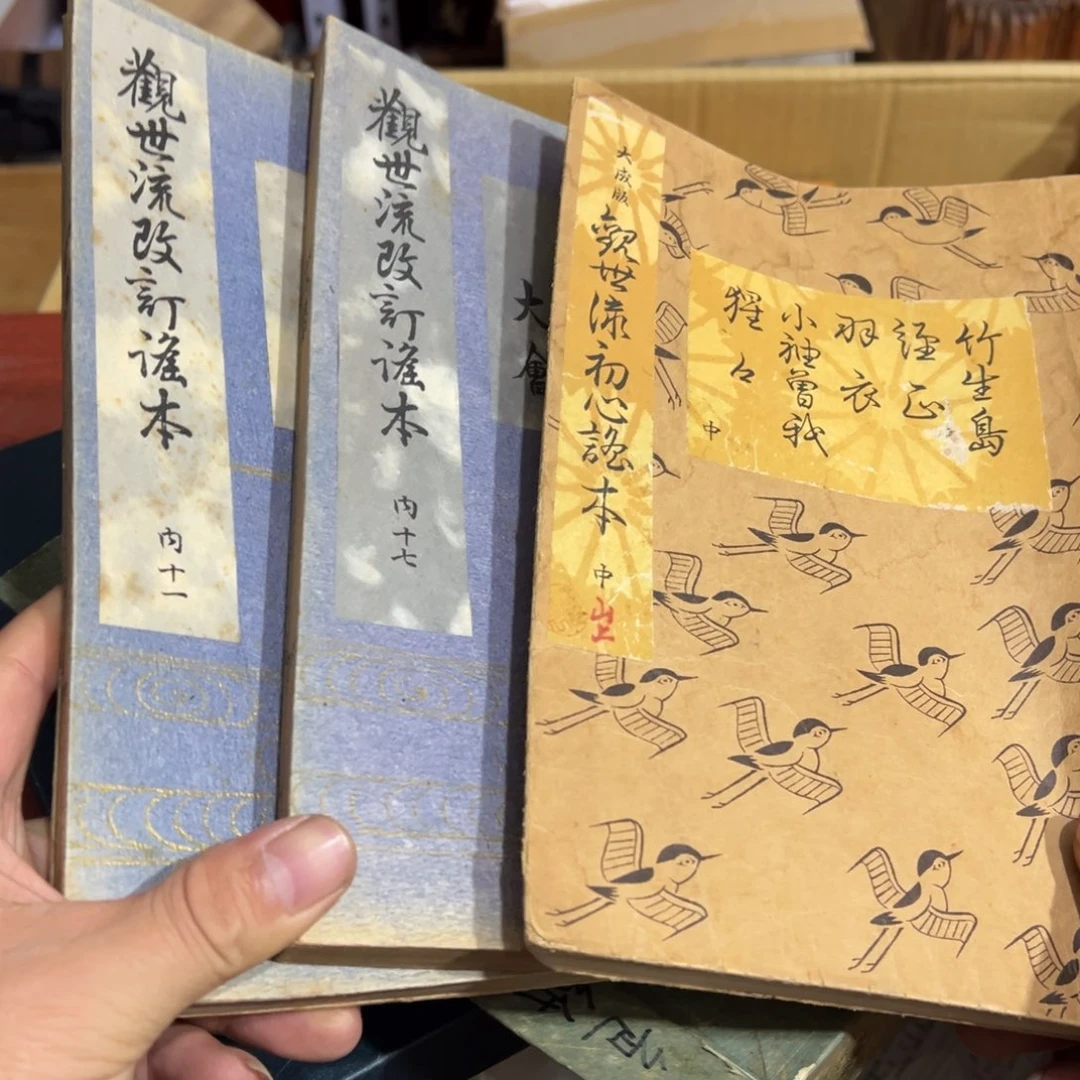 觀世流改訂謠本
内十一
觀世流改訂謠本
内十七
大會
大成版
觀世流初心謠本
中
竹生島
經正
羽衣
小袖曽我
猩々
中